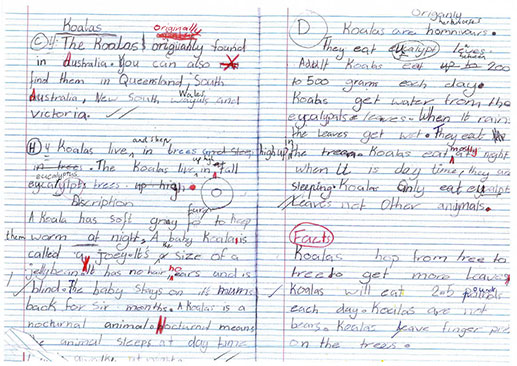 Koalas
originally
C 4 The Koalas originally found
in Australia. You can also
find them in Queensland, South
Wales
Australia, New South and
Victoria.
and sleep
H 4 Koalas live in trees and sleep high up
in trees. The Koalas live in tall
eucalyptus
trees. up high.
Discription
furr
A Koala has soft gray to keep
them warm at night. A baby Koala is
called a joey. It's the size of a
jellybean. It has no hair no ears and is
blind. The baby stays on its mums
back for six months. A Koala is a
nocturnal animal. Nocturnal means
the animal sleeps at day time
D
Koalas are
They eat leaves.
between
Adult Koalas eat up to 200
to 500 grams each day.
Koalas get water from the
leaves. When it rain
the leaves get wet. They eat
mostly
the tree. Koalas eat at night
when it is day time, they are
sleeping. Koalas only eat
Leaves not Other animals.
Facts
Koalas hop from tree to
tree to get more leaves
Koalas will eat 2.5
each day. Koalas are not
bears. Koalas leave finger
on the trees.